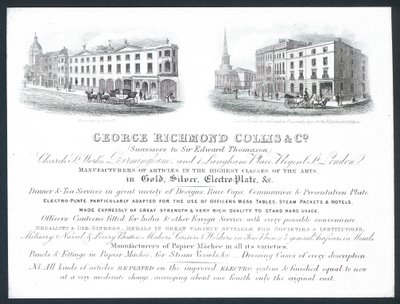 GEORGE RICHMOND COLLIS & Co.
(Successors to Sir Edward Thomason)
Church St. Works, Birmingham, and 1 Langham Place, Regent St. London.
MANUFACTURERS OF ARTICLES IN THE HIGHEST CLASSES OF THE ARTS,
in Gold, Silver, Electro-Plate, &c.
Dinner & Tea Services in great variety of Designs, Race Cups, Communion & Presentation Plate
ELECTRO-PLATE PARTICULARLY ADAPTED FOR THE USE OF OFFICERS MESS TABLES, STEAM PACKETS & HOTELS,
MADE EXPRESSLY OF GREAT STRENGTH & VERY RICH QUALITY TO STAND HARD USAGE.
Officers Canteens Fitted for India & other Foreign Service, with every possible convenience
MEDALISTS & DIE-SINKERS, MEDALS IN GREAT VARIETY SUITABLE FOR SOCIETIES & INSTITUTIONS,
Military, Naval & Livery Button Makers, Casters & Workers in & general in Metals
Manufacturers of Papier Machée in all its varieties.
Panels & Fittings in Papier Machée, for Steam Vessels &c. Dressing Cases of every description
N.B. All kinds of articles REPLATED on the improved ELECTRO system & finished equal to new
at a very moderate charge, averaging about one fourth only the original cost.